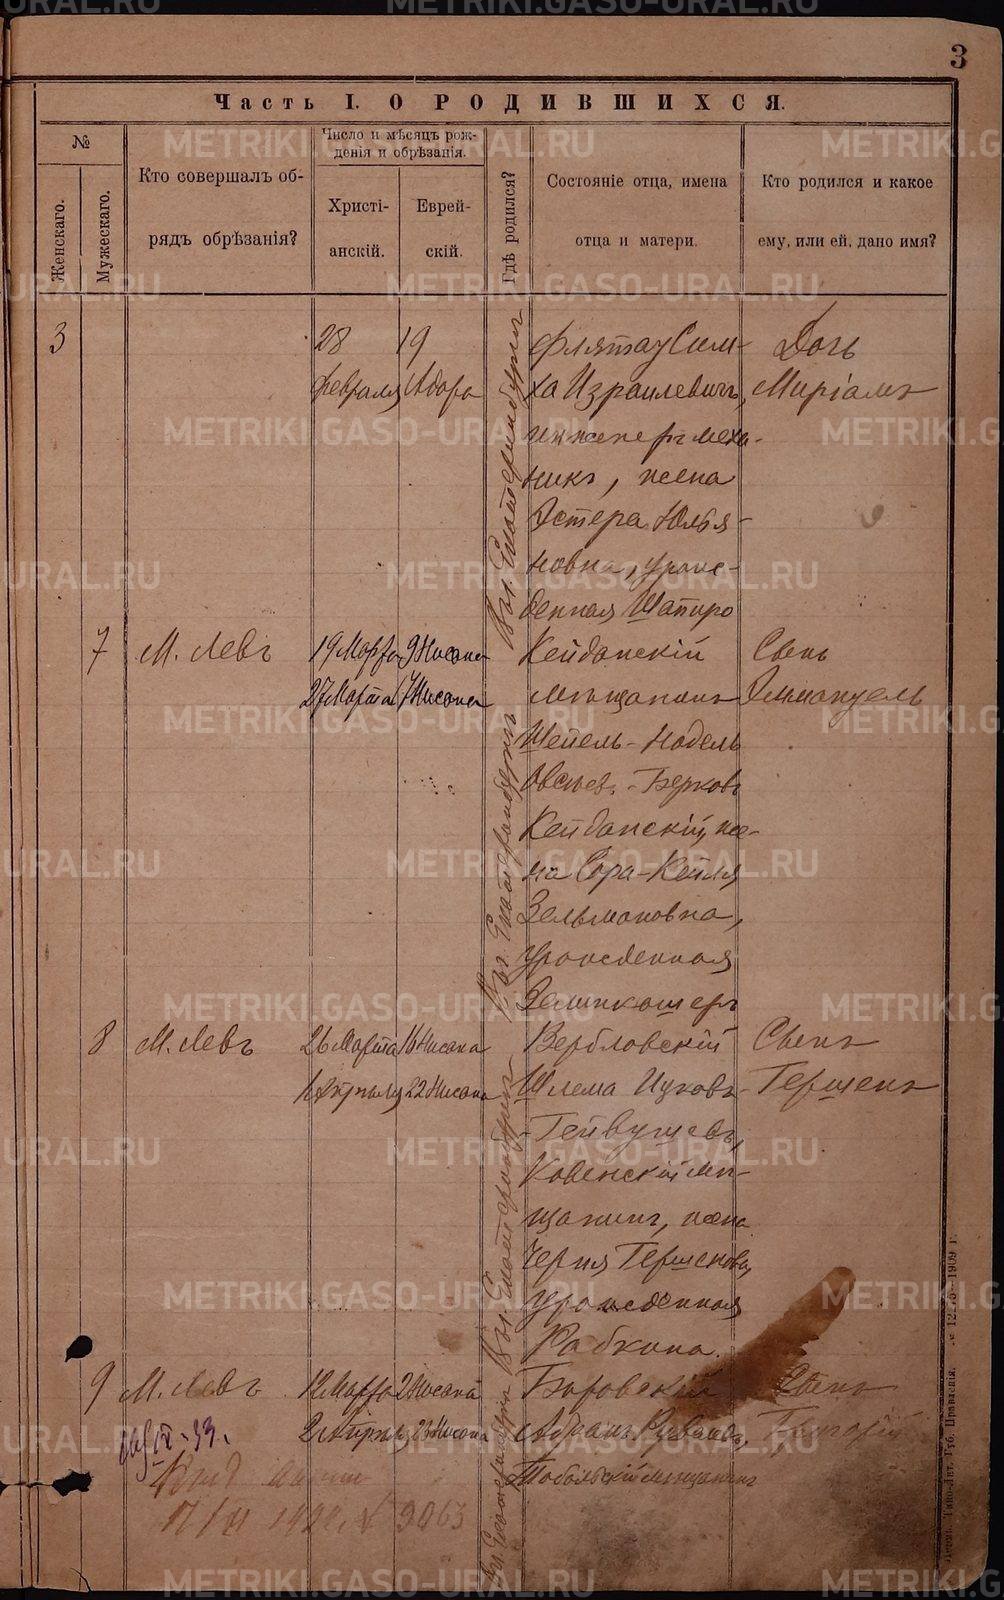 3
Часть I. О РОДИВШИХСЯ.
№
Женскаго.
Мужескаго.
Кто совершалъ об-
рядъ обрѣзанія?
Число и мѣсяцъ рож-
денія и обрѣзанія.
Христі-
анскій.
Еврей-
скій.
Гдѣ родился?
Состояніе отца, имена
отца и матери.
Кто родился и какое
ему, или ей, дано имя?
3
28
Февраля
19
Адара
Въ г. Екатеринбургѣ
Флятау Сим-
ха Израилевичъ,
инженеръ меха-
никъ, жена
Эстера Юлья-
новна, урож-
денная Шапиро
Дочь
Миріамъ
7
М. Левъ
19 Марта
27 Марта
9 Нисана
17 Нисана
Въ г. Екатеринбургѣ
Кейданскій
мѣщанинъ
Шепель-Надель
Берковъ
Кейданскій, же-
на Сора-Кейля
Зельмановна,
урожденная
Сынъ
Эммануель
8
М. Левъ
26 Марта
1 Апрѣля
16 Нисана
22 Нисана
Въ г. Екатеринбургѣ
Вербловскій
Шлема Ицковъ-
Ковенскій мѣ-
щанинъ, жена
Черня Гершенова,
урожденная
Рабкина.
Сынъ
Гершенъ
9
М. Левъ
12 Марта
2 Апрѣля
2 Нисана
23 Нисана
Въ г. Екатеринбургѣ
Боровскій
Абрамъ Рувимовъ,
Тобольскій мѣщанинъ
Сынъ
Григорій
9063
METRIKI.GASO-URAL.RU